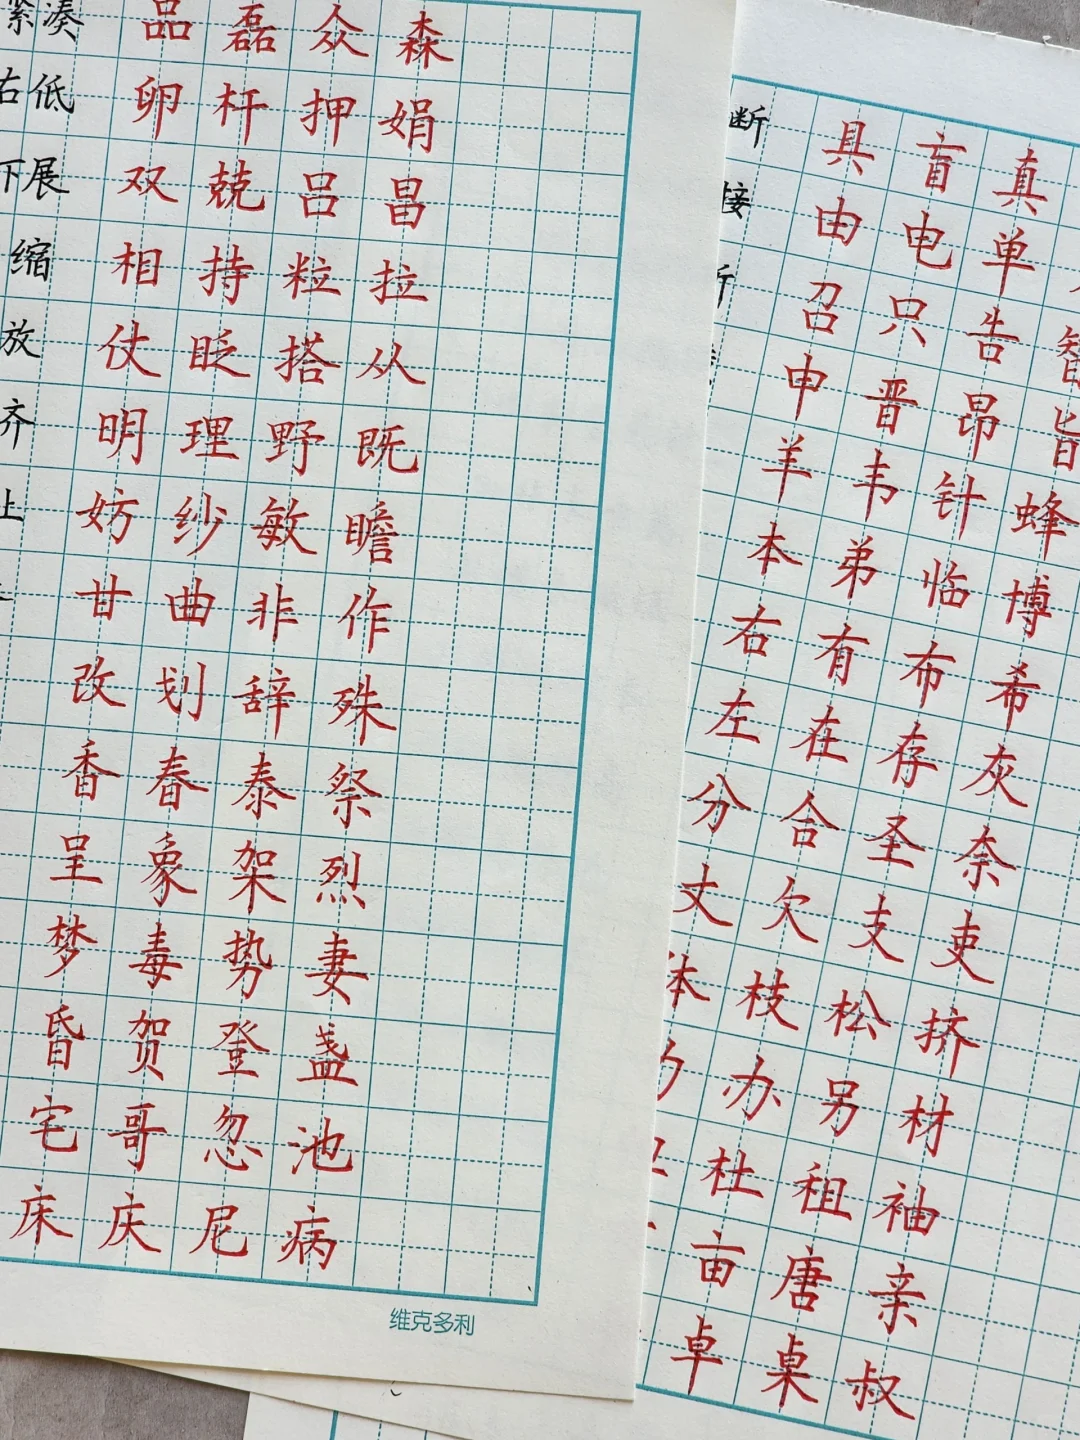 紧凑 品磊众森
右低 卵杆押娟
下展 双兢吕昌
缩 相持粒拉
放 仗眨搭从
齐 明理野既
上 妨纱敏瞻
甘曲非作
改划辞殊
香舂泰祭
呈象架烈
梦毒势妻
昏贺登盏
宅哥忽池
床庆尼病
维克多利
断 具盲真
接 由电单
召只告智
申晋昂旨
羊韦针蜂
本弟临博
右有布希
左在存灰
分合圣奈
丈欠支吏
体枝松挤
办另材
杜祖袖
亩唐亲
卓桌叔